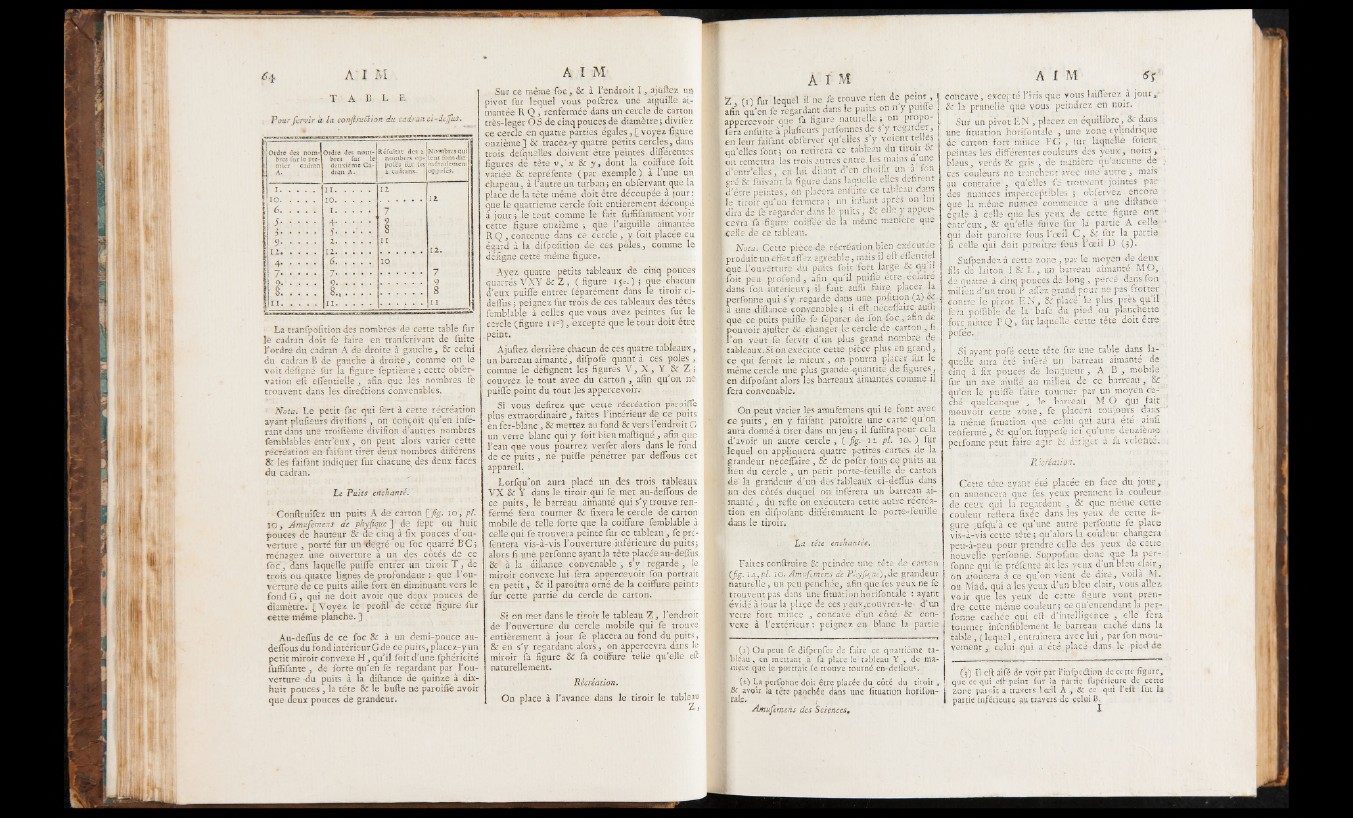 64
A I M
T A B L E
Pour servir à la construction du cadran ci-dessus.
Ordre des nombres sur le premier cadran A.
Ordre des nombres sur le deuxième cadran A.
Résultat des 2 nombres opposés sur les 2 cadrans.
Nombres qui leur sont diamétralement opposés.
1. 11. 12
10. 10. 12
6. 1. 7
5. 4. 9
3. 5. 8
9. 2. 11
12. 12. 12.
4. 6. 10
7. 7. 7
2. 9. 9
8. 8. 8
11. 11. 11
La transposition des nombres de cette table sur
le cadran doit se faire en transcrivant de suite
l'ordre du cadran A de droite à gauche, & celui
du cadran B de gauche à droite, comme on le
voit désigné sur la figure septième ; cette obser-
vation est essentielle, afin que les nombres se
trouvent dans les directions convenables.
Nota. Le petit sac qui sert à cette récréation
ayant plusieurs divisions, on conçoit qu'en insé-
rant dans une troisième division d'autres nombres
semblables entr'eux, on peut alors varier cette
récréation en faisant tirer deux nombres différens
& les faisant indiquer sur chacune des deux faces
du cadran.
Le Puits enchanté.
Construisez un puits A de carton [ fig. 10, pl.
10, Amusemens de physique ] de sept ou huit
pouces de hauteur & de cinq à six pouces d'ou-
verture, porté sur un degré ou soc quarré BC ;
ménagez une ouverture à un des côtés de ce
soc, dans laquelle puisse entrer un tiroir T, de
trois ou quatre lignes de profondeur : que l'ou-
verture de ce puits aille fort en diminuant vers le
fond G, qui ne doit avoir que deux pouces de
diamètre. [ Voyez le profil de cette figure sur
cette même planche. ]
Au-dessus de ce soc & à un demi-pouce au-
dessous du fond intérieur G de ce puits, placez-y un
petit miroir convexe H, qu'il soit d'une sphéricité
suffisante, de sorte qu'en se regardant par l'ou-
verture du puits à la distance de quinze à dix-
huit pouces, la tête & le buste ne paroisse avoir
que deux pouces de grandeur.
A I M
Sur ce même soc, & à l'endroit I, ajustez un
pivot sur lequel vous poserez une aiguille ai-
mantée R Q, renfermée dans un cercle de carton
très-leger O S de cinq pouces de diamètre ; divisez
ce cercle en quatre parties égales, [ voyez figure
onzième ] & tracez-y quatre petits cercles, dans
trois desquelles doivent être peintes différentes
figures de tête v, x & y, dont la coiffure soit
variée & représente ( par exemple ) à l'une un
chapeau, à l'autre un turban ; en observant que la
place de la tête même doit être découpée à jour :
que le quatrième cercle soit entièrement découpé
à jour ; le tout comme le fait suffisamment voir
cette figure onzième ; que l'aiguille aimantée
R Q, contenue dans ce cercle, y soit placée eu
égard à la disposition de ces pôles, comme le
désigne cette même figure.
Ayez quatre petits tableaux de cinq pouces
quarrés VXY & Z, ( figure 15e. ) ; que chacun
d'eux puisse entrer séparément dans le tiroir ci-
dessus ; peignez sur trois de ces tableaux des têtes
semblable à celles que vous avez peintes sur le
cercle ( figure 11e ), excepté que le tout doit être
peint.
Ajustez derrière chacun de ces quatre tableaux,
un barreau aimanté, disposé quant à ces poles,
comme le désignent les figures V, X, Y & Z ;
couvrez le tout avec du carton, afin qu'on ne
puisse point du tout les appercevoir.
Si vous desirez que cette récréation paroisse
plus extraordinaire, faites l'intérieur de ce puits
en fer-blanc, & mettez au fond & vers l'endroit G
un verre blanc qui y soit bien mastiqué, afin que
l'eau que vous pourrez verser alors dans le fond
de ce puits, ne puisse pénétrer par dessous cet
appareil.
Lorsqu'on aura placé un des trois tableaux
VX & Y dans le tiroir qui se met au-dessous de
ce puits, le barreau aimanté qui s'y trouve ren-
fermé fera tourner & fixera le cercle de carton
mobile de telle sorte que la coiffure semblable à
celle qui se trouvera peinte sur ce tableau, se pré-
sentera vis-à-vis l'ouverture inférieure du puits ;
alors si une personne ayant la tête placée au-dessus
& à la distance convenable, s'y regarde, le
miroir convexe lui fera appercevoir son portrait
en petit, & il paroîtra orné de la coiffure peinte
sur cette partie du cercle de carton.
Si on met dans le tiroir le tableau Z, l'endroit
de l'ouverture du cercle mobile qui se trouve
entièrement à jour se placera au fond du puits,
& en s'y regardant alors, on appercevra dans le
miroir sa figure & sa coiffure telle qu'elle est
naturellement.
Récréation.
On place à l'avance dans le tiroir le tableau
Z,
A I M
Z, (1) sur lequel il ne se trouve rien de peint,
afin qu'en se regardant dans le puits on n'y puisse
appercevoir que sa figure naturelle ; on propo-
sera ensuite à plusieurs personnes de s'y regarder,
en leur faisant observer qu'elles s'y voient telles
qu'elles sont ; on retirera ce tableau du tiroir &
on remettra les trois autres entre les mains d'une
d'entr'elles, en lui disant d'en choisir un à son
gré & suivant la figure dans laquelle elles desirent
d'être peintes, on placera ensuite ce tableau dans
le tiroir qu'on fermera ; un instant après on lui
dira de se regarder dans le puits, & elle y apper-
cevra sa figure coiffée de la même manière que
celle de ce tableau.
Nota. Cette pièce de récréation bien exécutée
produit un effet assez agréable, mais il est essentiel
que l'ouverture du puits soit fort large & qu'il
soit peu profond, afin qu'il puisse être éclairé
dans son intérieur ; il faut aussi faire placer la
personne qui s'y regarde dans une position (2) &
à une distance convenable ; il est nécessaire aussi
que ce puits puisse se séparer de son soc, afin de
pouvoir ajuster & changer le cercle de carton, si
l'on veut se servir d'un plus grand nombre de
tableaux. Si on exécute cette pièce plus en grand,
ce qui feroit le mieux, on pourra placer sur le
même cercle une plus grande quantité de figures,
en disposant alors les barreaux aimantés comme il
sera convenable.
On peut varier les amusemens qui se font avec
ce puits, en y faisant paroître une carte qu'on
aura donné à tirer dans un jeu ; il suffira pour cela
d'avoir un autre cercle, ( fig. 12. pl. 10. ) sur
lequel on appliquera quatre petites cartes de la
grandeur nécessaire, & de poser sous ce puits au
lieu du cercle, un petit porte-feuille de carton
de la grandeur d'un des tableaux ci-dessus dans
un des côtés duquel on insérera un barreau ai-
manté, du reste on exécutera cette autre récréa-
tion en disposant différemment le porte-feuille
dans le tiroir.
La tête enchantée.
Faites construire & peindre une tête de carton
(fig. 12, pl. 10. Amusemens de Physique), de grandeur
naturelle, un peu penchée, afin que ses yeux ne se
trouvent pas dans une situation horisontale : ayant
évidé à jour la place de ces yeux, couvrez-le d'un
verre fort mince, concave d'un côté & con-
vexe à l'extérieur : peignez en blanc la partie
(1) On peut se dispenser de faire ce quatrième ta-
bleau, en mettant à sa place le tableau Y, de ma-
nière que le portrait se trouve tourné en-dessous.
(2) La personne doit être placée du côté du tiroir,
& avoir la tête panchée dans une situation horison-
tale.
Amusemens des Sciences.
A I M
65
concave, excepté l'iris que vous laisserez à jour,
& la prunelle que vous peindrez en noir.
Sur un pivot E N, placez en équilibre, & dans
une situation horisontale, une zone cylindrique
de carton fort mince F G, sur laquelle soient
peintes les différentes couleurs des yeux, noirs,
bleus, verds & gris, de manière qu'aucune de
ces couleurs ne tranchent avec une autre, mais
au contraire, qu'elles se trouvent jointes par
des nuances imperceptibles ; observez encore
que la même nuance commence à une distance
égale à celle que les yeux de cette figure ont
entr'eux, & qu'elle suive sur la partie A celle
qui doit paroître sous l'œil C, & sur la partie
B celle qui doit paroître sous l'œil D (3).
Suspendez à cette zone, par le moyen de deux
fils de laiton I & L, un barreau aimanté M O,
de quatre à cinq pouces de long, percé dans son
milieu d'un trou P assez grand pour ne pas frotter
contre le pivot E N, & placé le plus près qu'il
sera possible de la base du pied ou planchette
fort mince P Q, sur laquelle cette tête doit être
posée.
Si ayant posé cette tête sur une table dans la-
quelle aura été inséré un barreau aimanté de
cinq à six pouces de longueur, A B, mobile
sur un axe ajusté au milieu de ce barreau, &
qu'on le puisse faire tourner par un moyen ca-
ché quelconque, le barreau M O qui fait
mouvoir cette zone, se placera toujours dans
la même situation que celui qui aura été ainsi
renfermé, & qu'on suppose ici qu'une deuxième
personne peut faire agir & diriger à sa volonté.
Récréation.
Cette tête ayant été placée en face du jour,
on annoncera que ses yeux prennent la couleur
de ceux qui la regardent, & que même cette
couleur restera fixée dans les yeux de cette fi-
gure jusqu'à ce qu'une autre personne se place
vis-à-vis cette tête ; qu'alors la couleur changera
peu-à-peu pour prendre celle des yeux de cette
nouvelle personne. Supposant donc que la per-
sonne qui se présente ait les yeux d'un bleu clair,
on ajoutera à ce qu'on vient de dire, voilà M.
ou Mad. qui a les yeux d'un bleu clair, vous allez
voir que les yeux de cette figure vont pren-
dre cette même couleur ; ce qu'entendant la per-
sonne cachée qui est d'intelligence, elle fera
tourner insensiblement le barreau caché dans la
table, ( lequel, entraînera avec lui, par son mou-
vement, celui qui a été placé dans le pied de
(3) Il est aisé de voir par l'inspection de cette figure,
que ce qui est peint sur la partie supérieure de cette
zone paroît à travers l'œil A, & ce qui l'est sur la
partie inférieure au travers de celui B.
I